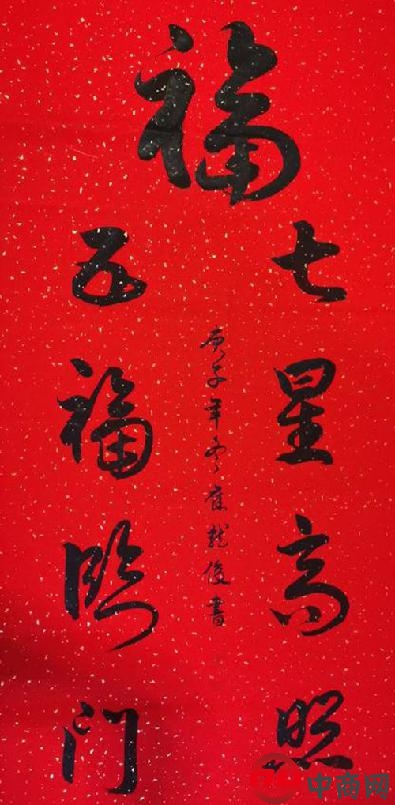 福
七星高照
五福临门
庚子年冬崔龙俊书
中商网